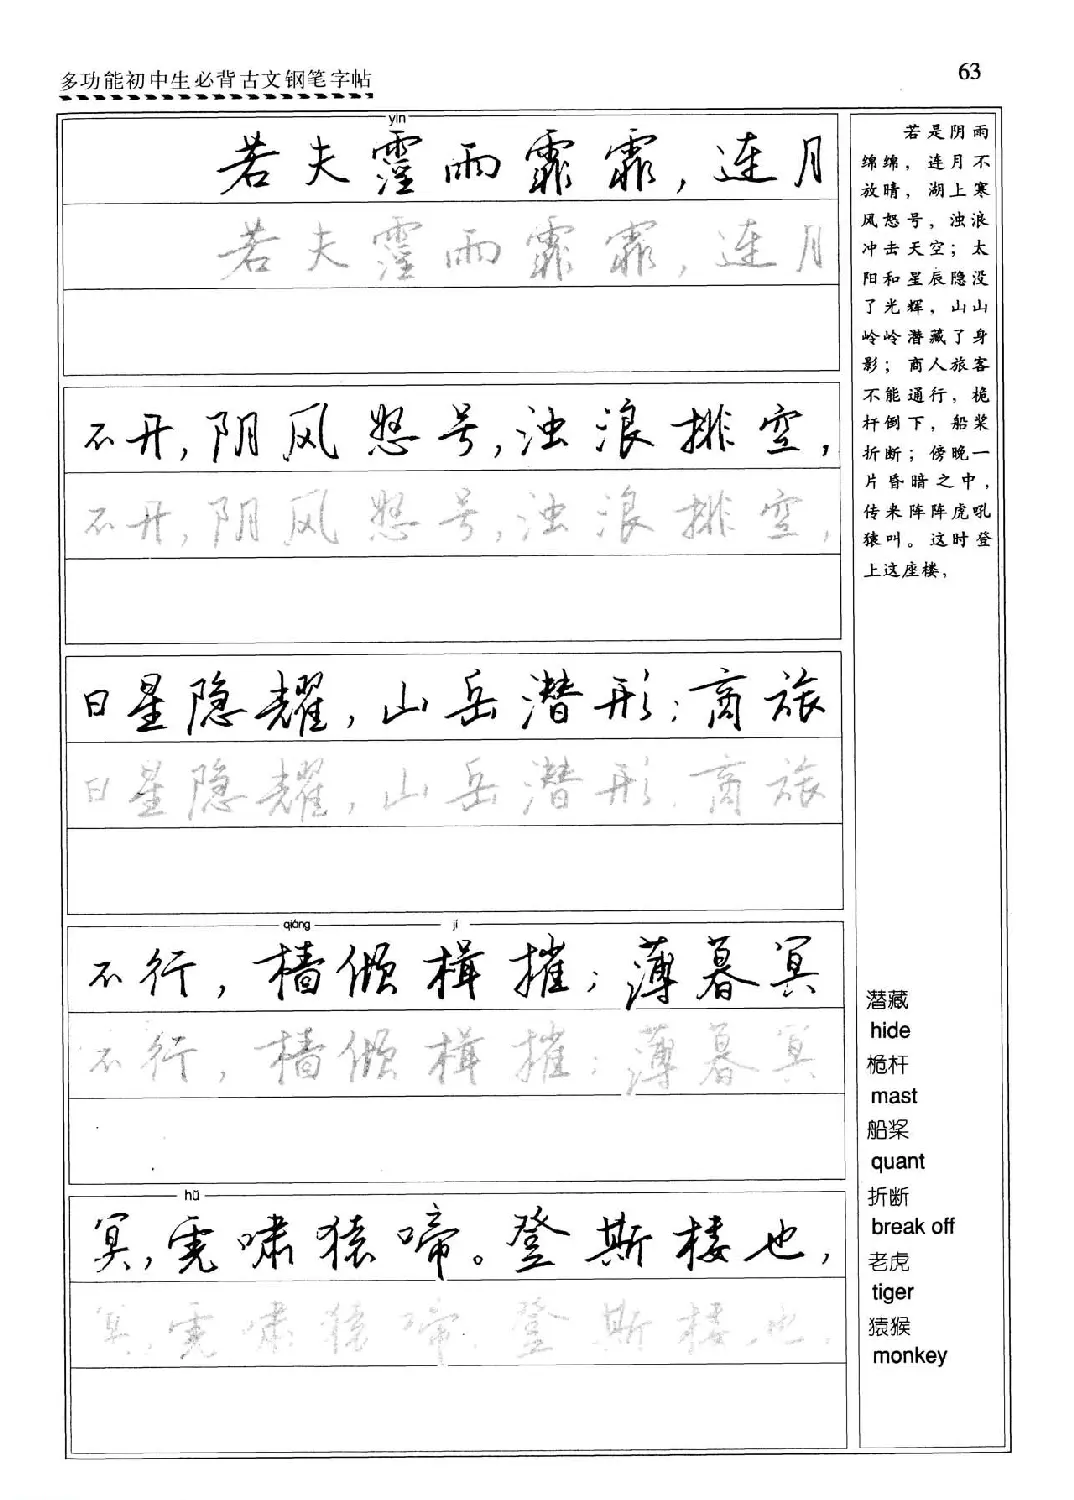 多功能初中生必背古文钢笔字帖
63
yín
若夫霪雨霏霏，连月
若夫霪雨霏霏，连月
不开，阴风怒号，浊浪排空，
不开，阴风怒号，浊浪排空，
日星隐耀，山岳潜形；商旅
日星隐耀，山岳潜形；商旅
qiáng jí
不行，樯倾楫摧；薄暮冥
不行，樯倾楫摧；薄暮冥
hǔ
冥，虎啸猿啼。登斯楼也，
冥，虎啸猿啼。登斯楼也，
若是阴雨
绵绵，连月不
放晴，湖上寒
风怒号，浊浪
冲击天空；太
阳和星辰隐没
了光辉，山山
岭岭潜藏了身
影；商人旅客
不能通行，桅
杆倒下，船桨
折断；傍晚一
片昏暗之中，
传来阵阵虎吼
猿叫。这时登
上这座楼，
潜藏
hide
桅杆
mast
船桨
quant
折断
break off
老虎
tiger
猿猴
monkey